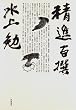 精進百撰
水上勉